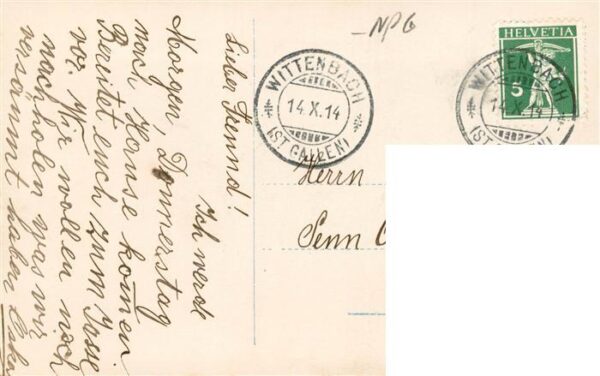 Lieber Freund!
Ich werde
Morgen, Donnerstag
nach Hause komen
Bereitet euch zum Jasse
vor. Wir wollen noch
nachholen was wir
versaumt haben
NPG
HELVETIA
5
WITTENBACH
14.X.14
(ST. GALLEN)
WITTENBACH
14.X.14
(ST. GALLEN)
Herrn
Senn